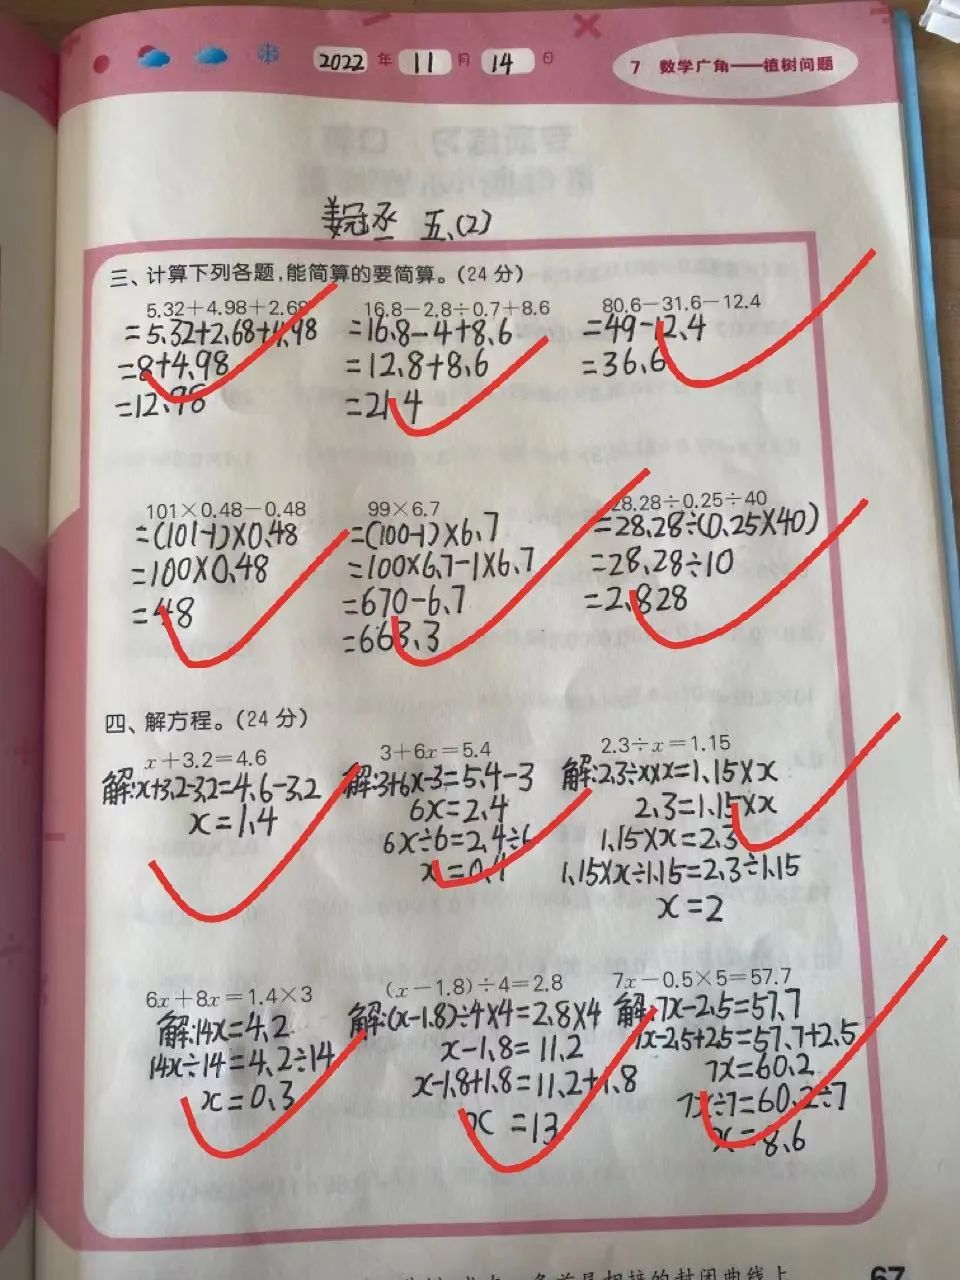 2022年11月14日
7 数学广角——植树问题
姜冠丞 五、(2)
三、计算下列各题,能简算的要简算。(24分)
5.32+4.98+2.68
=5.32+2.68+4.98
=8+4.98
=12.98
16.8-2.8÷0.7+8.6
=16.8-4+8.6
=12.8+8.6
=21.4
80.6-31.6-12.4
=49-12.4
=36.6
101×0.48-0.48
=(101-1)×0.48
=100×0.48
=48
99×6.7
=(100-1)×6.7
=100×6.7-1×6.7
=670-6.7
=663.3
28.28÷0.25÷40
=28.28÷(0.25×40)
=28.28÷10
=2.828
四、解方程。(24分)
x+3.2=4.6
解:x+3.2-3.2=4.6-3.2
x=1.4
3+6x=5.4
解:3+6x-3=5.4-3
6x=2.4
6x÷6=2.4÷6
x=0.4
2.3÷x=1.15
解:2.3÷x×x=1.15×x
2.3=1.15×x
1.15×x=2.3
1.15×x÷1.15=2.3÷1.15
x=2
6x+8x=1.4×3
解:14x=4.2
14x÷14=4.2÷14
x=0.3
(x-1.8)÷4=2.8
解:(x-1.8)÷4×4=2.8×4
x-1.8=11.2
x-1.8+1.8=11.2+1.8
x=13
7x-0.5×5=57.7
解:7x-2.5=57.7
7x-2.5+2.5=57.7+2.5
7x=60.2
7x÷7=60.2÷7
x=8.6
67